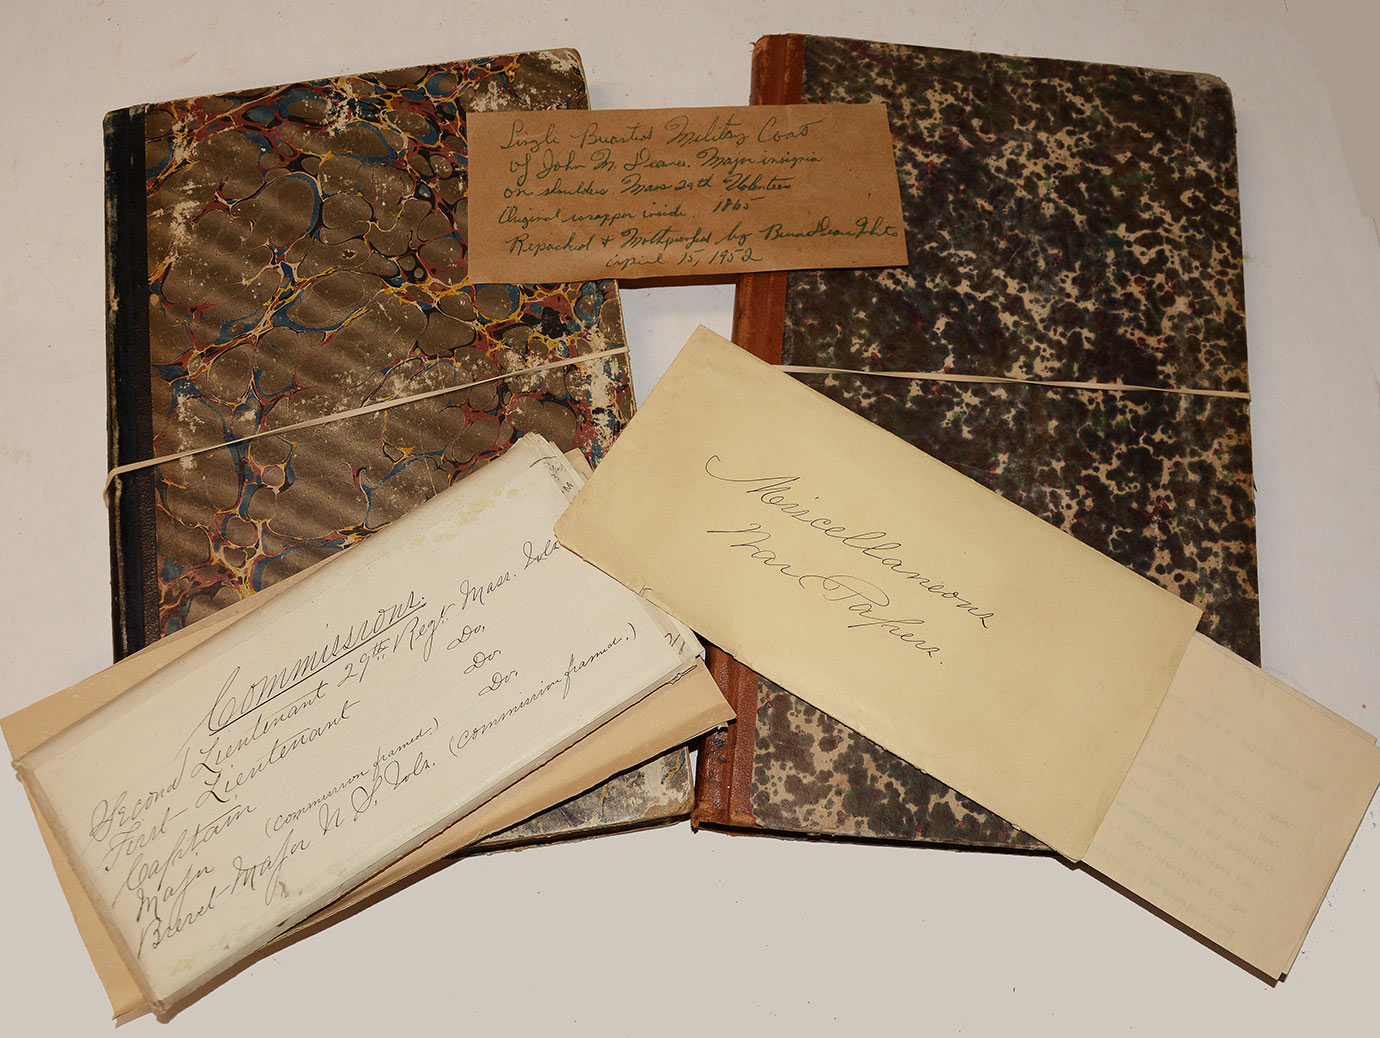 Single Breasted Military Coat
of John M. Deane. Major insignia
on shoulders. Mass 29th Volunteers
Original wrapper inside. 1865
Repacked & Mothproofed by
April 15, 1952
Miscellaneous
War Papers.
Commissions.
Second Lieutenant 29th Regt. Mass. Vols
First-Lieutenant Do.
Captain Do.
Major (commission framed.) Do.
Brevet-Major U.S. Vols. (commission framed.)